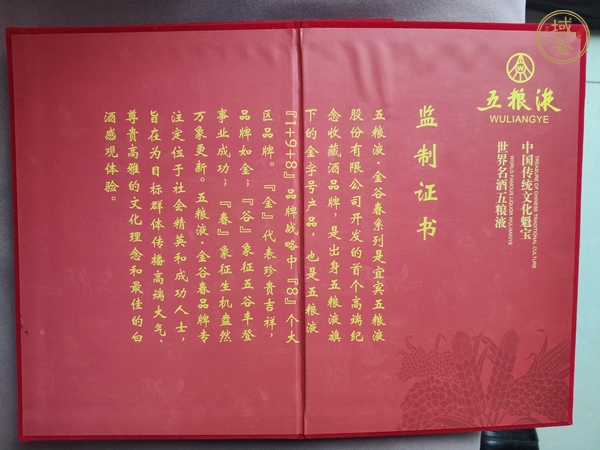 五粮液
WULIANGYE
中国传统文化魁宝
TREASURE OF CHINESE TRADITIONAL CULTURE
世界名酒五粮液
WORLD FAMOUS LIQUOR WULIANGYE
监制证书
五粮液·金谷春系列是宜宾五粮液
股份有限公司开发的首个高端纪
念收藏酒品牌，是出身五粮液旗
下的金字号产品，也是五粮液
『1+9+8』品牌战略中『8』个大
区品牌。『金』代表珍贵吉祥，
品牌如金；『谷』象征五谷丰登
事业成功；『春』象征生机盎然
万象更新。五粮液·金谷春品牌专
注定位于社会精英和成功人士，
旨在为目标群体传播高端大气、
尊贵高雅的文化理念和最佳的白
酒感观体验。